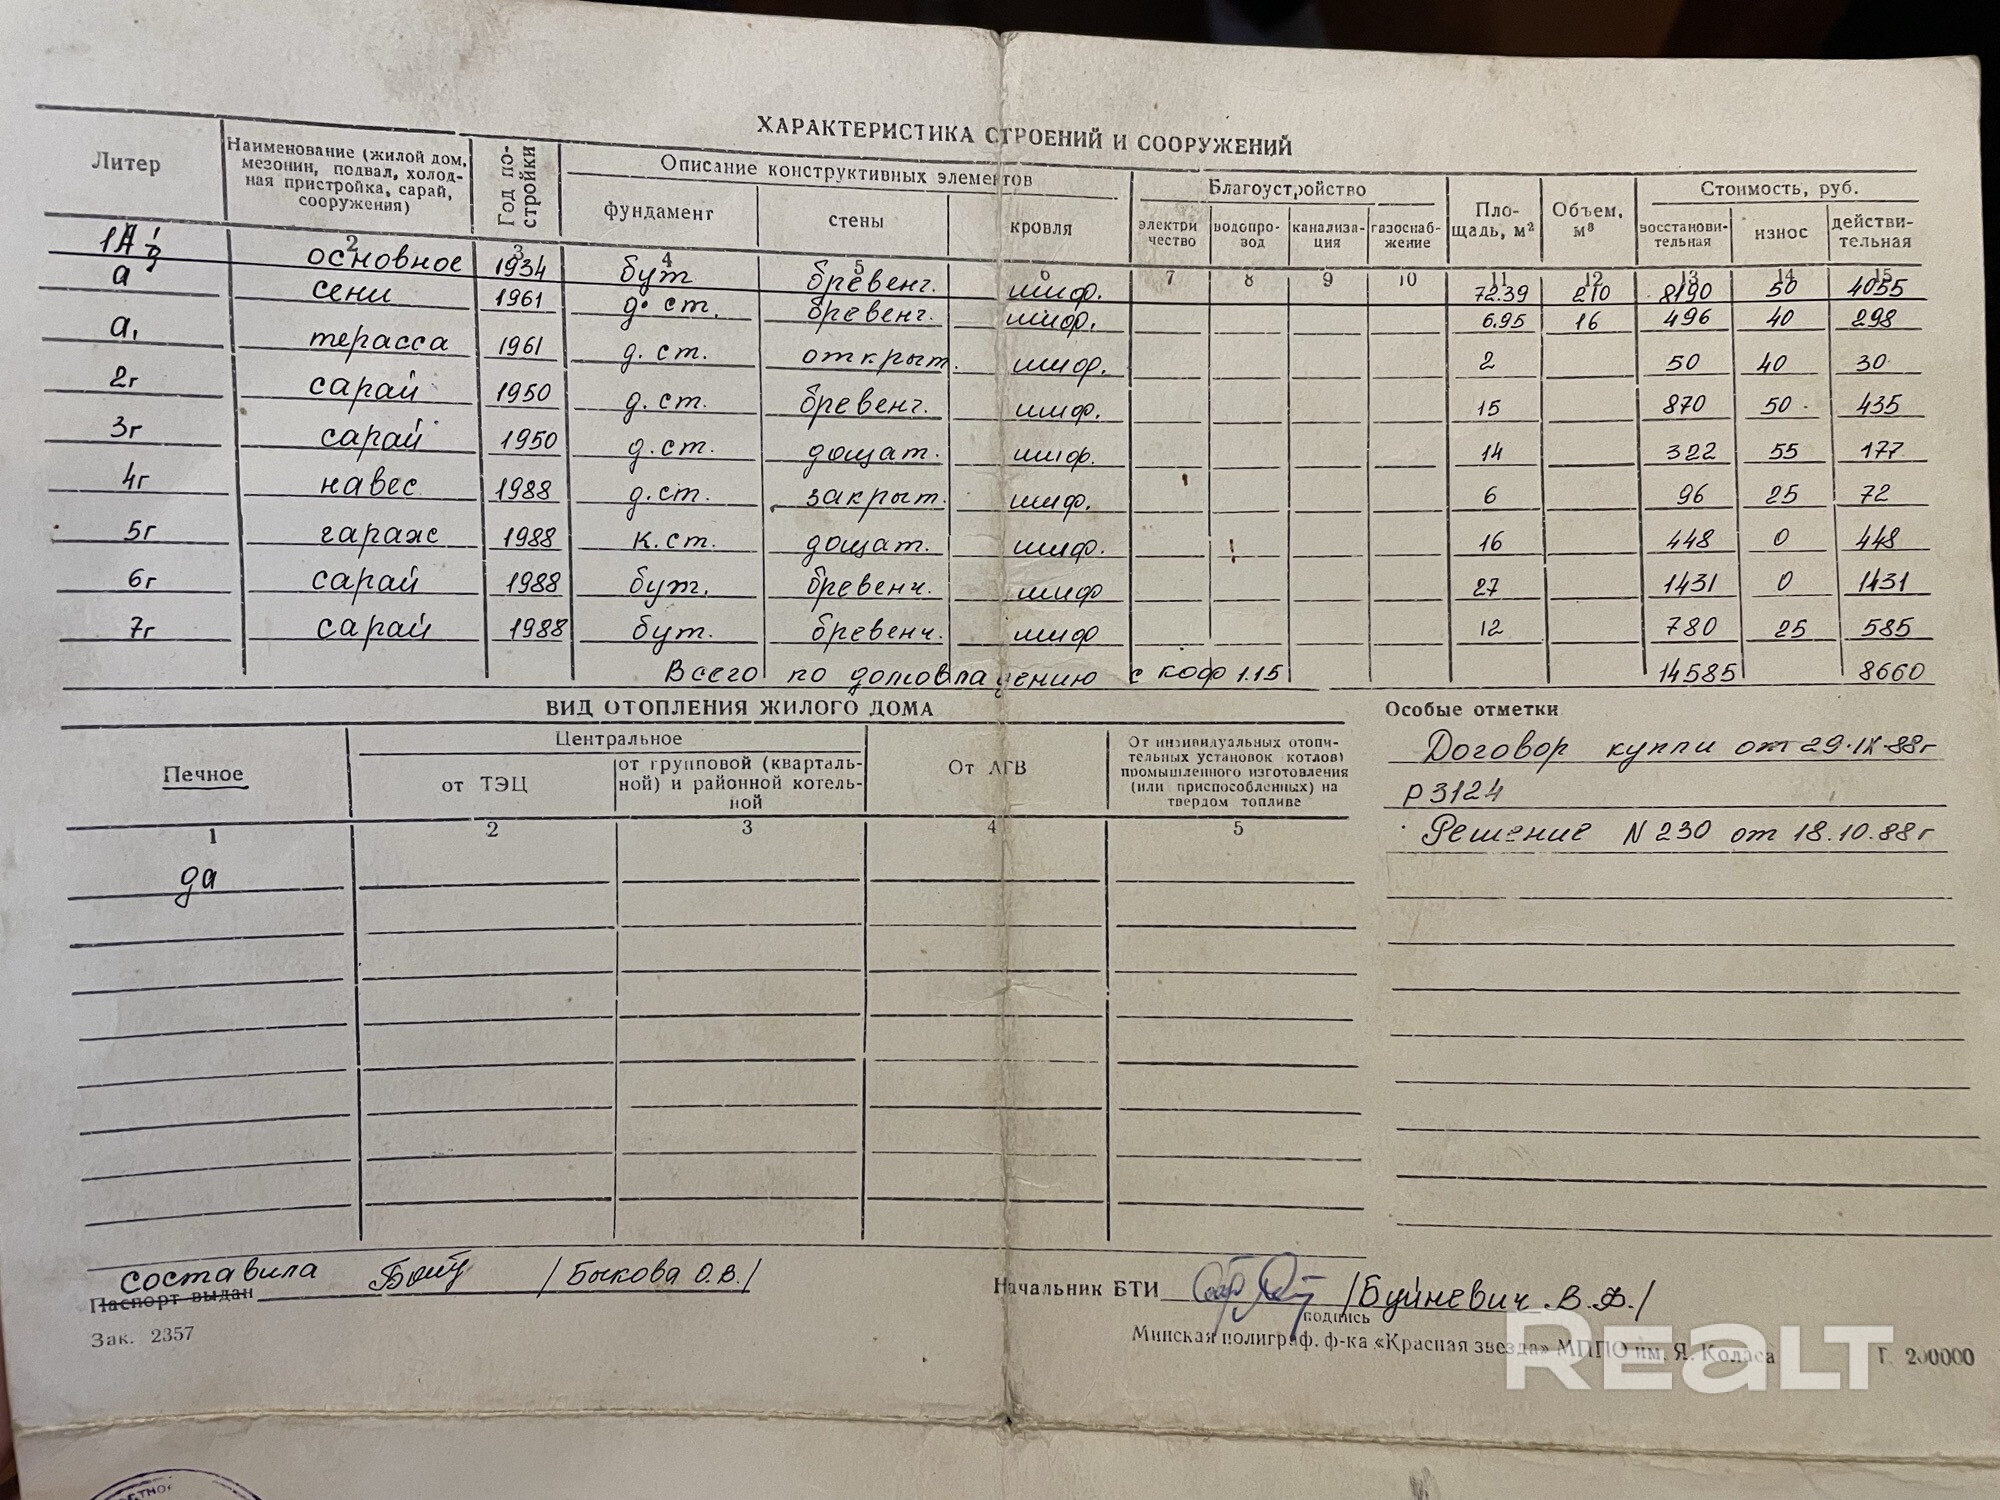 ХАРАКТЕРИСТИКА СТРОЕНИЙ И СООРУЖЕНИЙ
Литер Наименование (жилой дом, мезонин, подвал, холодная пристройка, сарай, сооружения) Год постройки Описание конструктивных элементов Благоустройство Площадь, м² Объем, м³ Стоимость, руб.
фундамент стены кровля электричество водопровод канализация газоснабжение восстановительная износ действительная
2 3 4 5 6 7 8 9 10 11 12 13 14 15
1А основное 1934 бут бревенч. шиф. 72.39 210 8190 50 4055
а сени 1961 д. ст. бревенч. шиф. 6.95 16 496 40 298
а, терасса 1961 д. ст. открыт. шиф. 2 50 40 30
2г сарай 1950 д. ст. бревенч. шиф. 15 870 50 435
3г сарай 1950 д. ст. дощат. шиф. 14 322 55 177
4г навес 1988 д. ст. закрыт. шиф. 6 96 25 72
5г гараж 1988 к. ст. дощат. шиф. 16 448 0 448
6г сарай 1988 бут. бревенч. шиф 27 1431 0 1431
7г сарай 1988 бут. бревенч. шиф 12 780 25 585
Всего по домовладению с коф 1.15 14585 8660
ВИД ОТОПЛЕНИЯ ЖИЛОГО ДОМА
Печное Центральное От АГВ От индивидуальных отопительных установок котлов) промышленного изготовления (или приспособленных) на твердом топливе
от ТЭЦ от групповой (квартальной) и районной котельной
1 2 3 4 5
да
Особые отметки
Договор купли от 29.IX.88г
р 3124
Решение N 230 от 18.10.88г
составила /Быкова О.В./
Паспорт выдан
Начальник БТИ /Буйневич В.Ф./
подпись
Зак. 2357
Минская полиграф. ф-ка «Красная звезда» МППО им. Я. Коласа Т. 200000
Realt